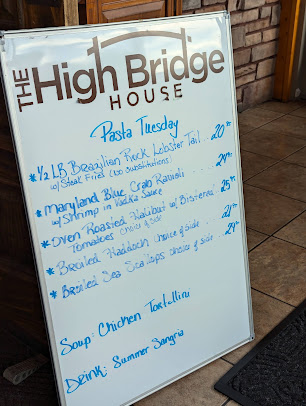 THE High Bridge
HOUSE
Pasta Tuesday
* 1/2 LB Brazilian Rock Lobster Tail .. 20
w/ Steak Fries (No substitutions)
* Maryland Blue Crab Ravioli ... 24
w/ Shrimp in Vodka Sauce
* Oven Roasted Halibut w/ Blistered 25
Tomatoes choice of side
* Broiled Haddock choice of side ..
* Broiled Sea Scallops choice of side .. 24
Soup: Chicken Tortellini
Drink: Summer Sangria